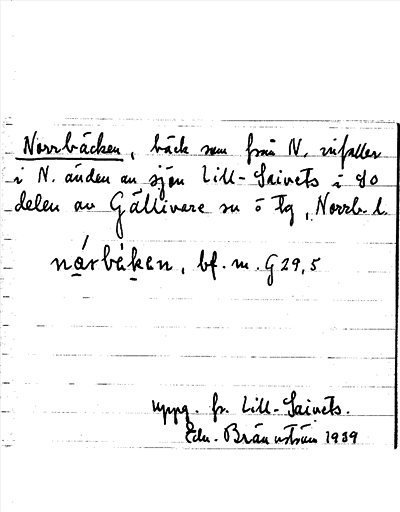 Norrbäcken, bäck som från N. infaller
i N. änden av sjön Lill-Saivets i SO
delen av Gällivare sn o tg, Norrb. l.
nårbäken, bf. m. G 29,5
uppg. fr. Lill-Saivets.
Edv. Brännström 1939